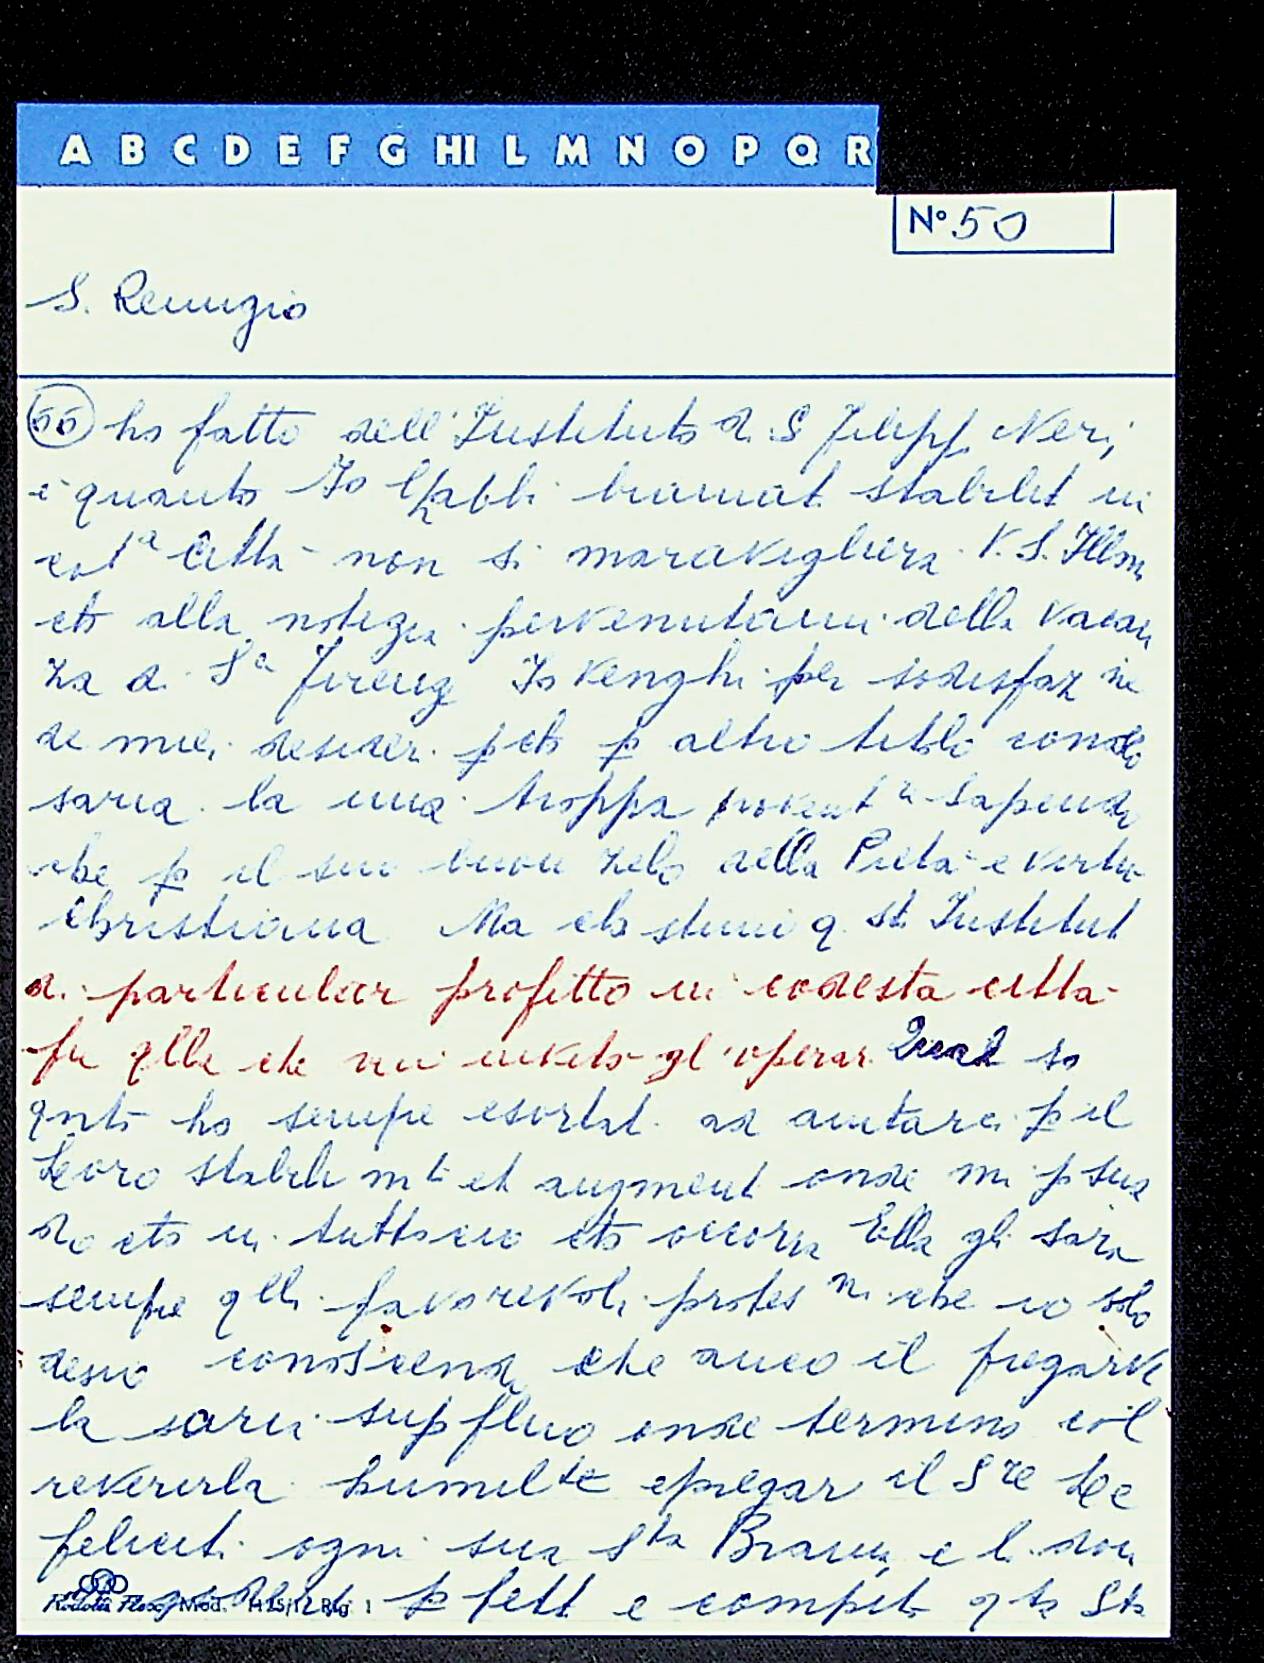 A B C D E F G HI L M N O P Q R
Nº 50
S. Remigio
55 ho fatto dell'Instituto di S Filipp Neri,
e quanto Io l'habbi bramat stabilit in
cot.ª Città non si maraviglierà V. S. Illm
ch alla notizia pervenutami della vacan
za di S.ª Firenz Io venghi per sodisfaz ne
de miei desideri p ch p altro titolo
saria la mia troppa sapend
che p il suo buon zelo della Pietà e virtù
Christiana Ma ch stimi q. st. Institut
di particular profitto in codesta città
fu qlle che mi gl'operar Qual so
qnto ho sempre esortat ad aiutare p il
loro stabili mto et augment onde mi p sua
do ch in tutto ciò ch occorra Ella gli sara
sempre qlli favorevoli protes ni che io solo
desio conoscend che anco il pregarve
la saria sup fluo onde termino col
reverirla humil te e pregar il S re Le
feliciti ogni sua S ta Brama, e li don
p fett e compit q ta Sta